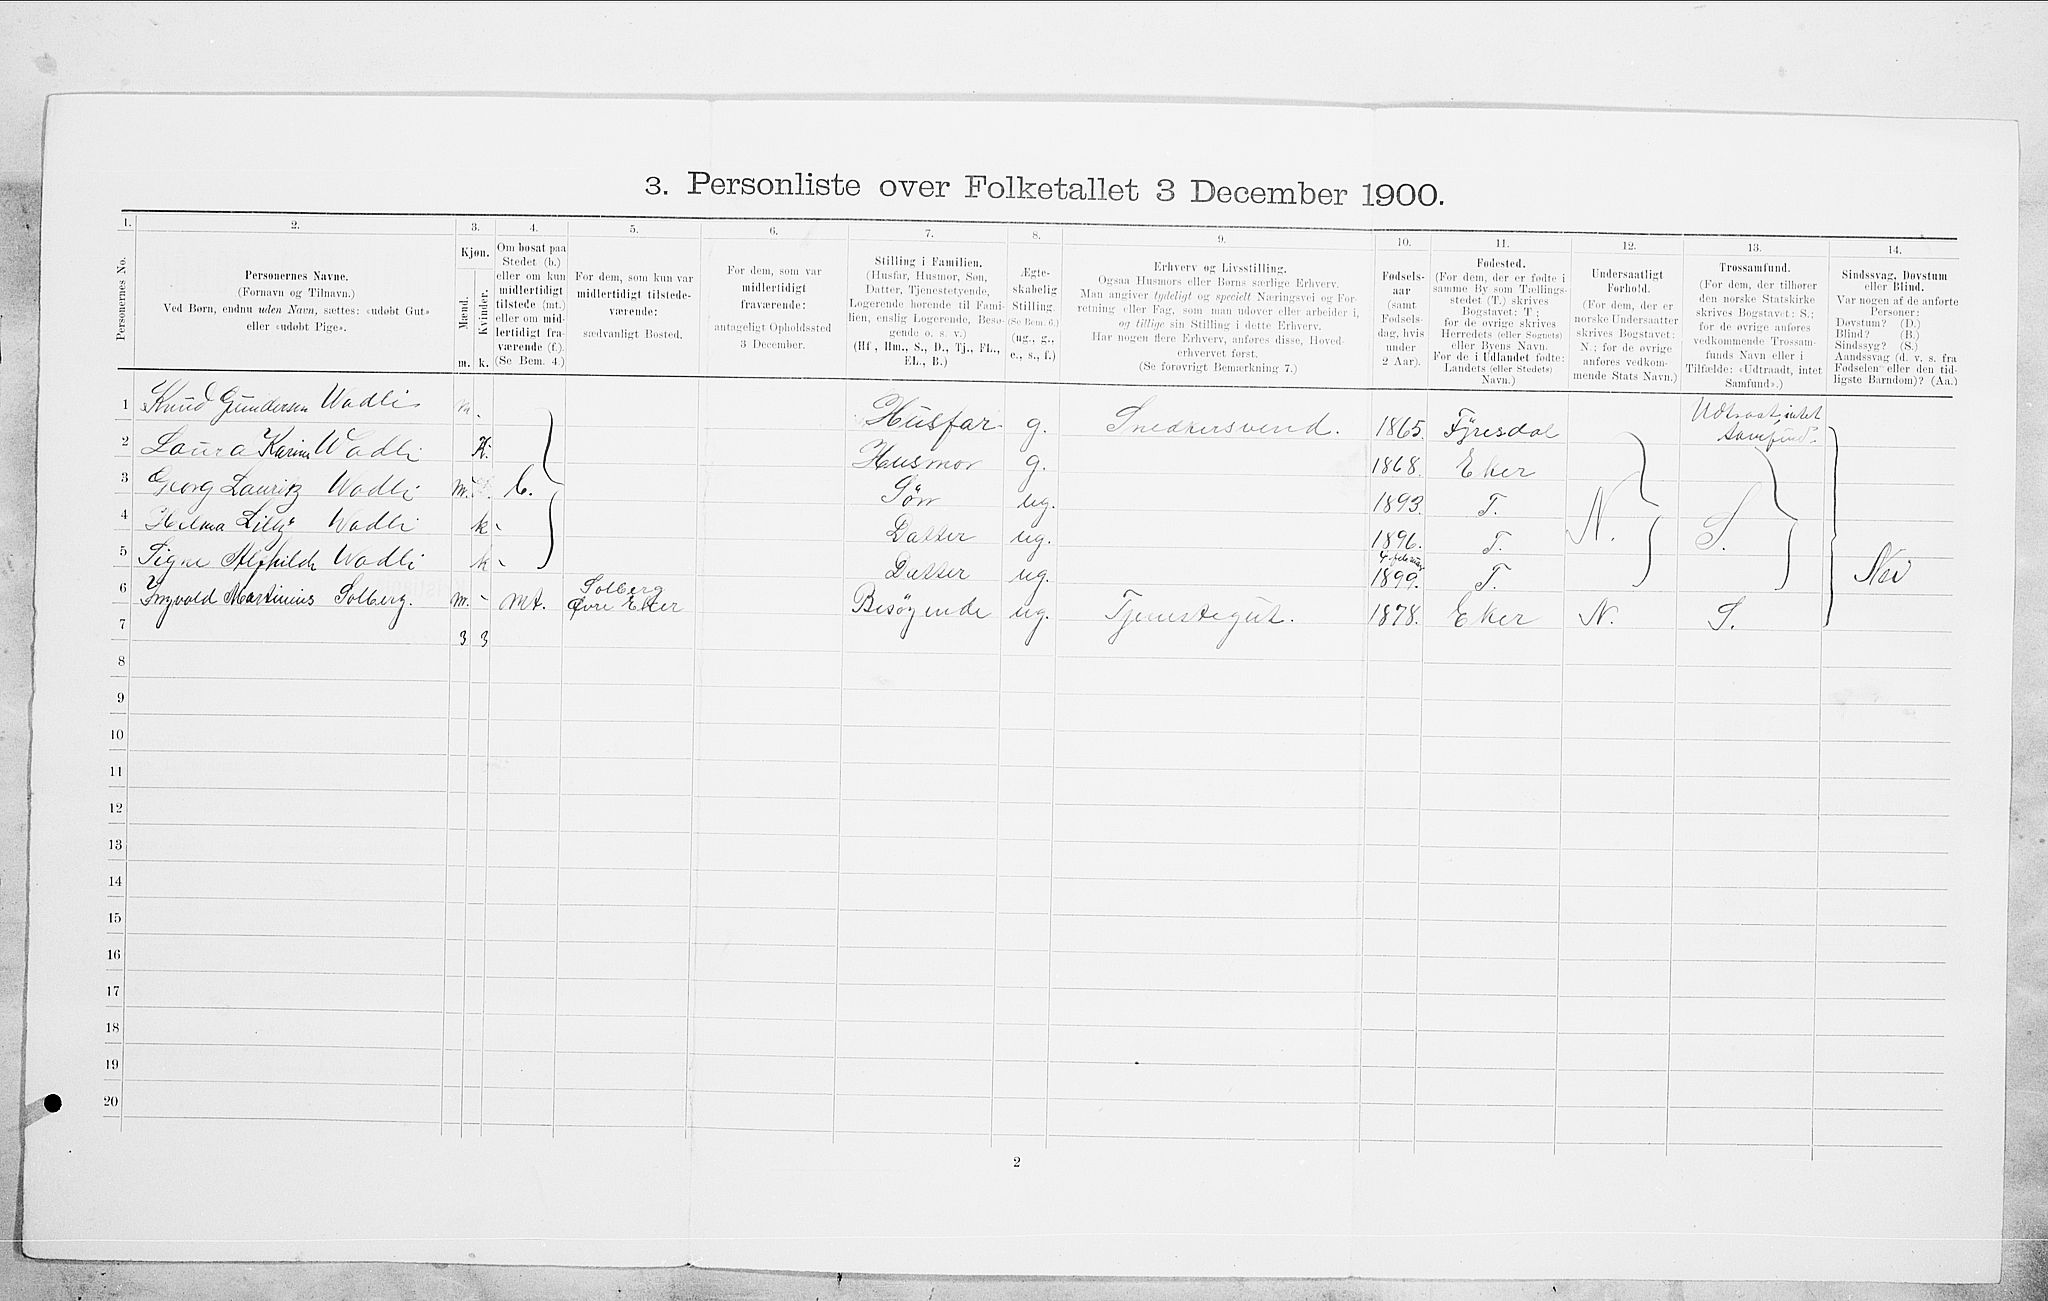 3. Personliste over Folketallet 3 December 1900.
1. 2. 3. 4. 5. 6. 7. 8. 9. 10. 11. 12. 13. 14.
Personernes No.
Personernes Navne.
(Fornavn og Tilnavn.)
Ved Børn, endnu uden Navn, sættes: «udøbt Gut»
eller «udøbt Pige».
Kjøn.
Mænd.
Kvinder.
m. k.
Om bosat paa
Stedet (b.)
eller om kun
midlertidigt
tilstede (mt.)
eller om mid-
lertidigt fra-
værende (f.).
(Se Bem. 4.)
For dem, som kun var
midlertidigt tilstede-
værende:
sædvanligt Bosted.
For dem, som var
midlertidigt
fraværende:
antageligt Opholdssted
3 December.
Stilling i Familien.
(Husfar, Husmor, Søn,
Datter, Tjenestetyende,
Logerende hørende til Fami-
lien, enslig Logerende, Besø-
gende o. s. v.)
(Hf., Hm., S., D., Tj., FL.,
EL., B.)
Ægte-
skabelig
Stilling.
(Se Bem. 6.)
(ug., g.,
e., s., f.)
Erhverv og Livsstilling.
Ogsaa Husmors eller Børns særlige Erhverv.
Man angiver tydeligt og specielt Næringsvei og For-
retning eller Fag, som man udøver eller arbeider i,
og tillige sin Stilling i dette Erhverv.
Har nogen flere Erhverv, anføres disse, Hoved-
erhvervet først.
(Se forøvrigt Bemærkning 7.)
Fødsels-
aar
(samt
Fødsels-
dag, hvis
under
2 Aar).
Fødested.
(For dem, der er fødte i
samme By som Tællings-
stedet (T.) skrives
Bogstavet: T;
for de øvrige skrives
Herredets (eller Sognets)
eller Byens Navn.
For de i Udlandet fødte:
Landets (eller Stedets)
Navn.)
Undersaatligt
Forhold.
(For dem, der er
norske Undersaatter
skrives Bogstavet:
N.; for de øvrige
anføres vedkom-
mende Stats Navn.)
Trossamfund.
(For dem, der tilhører
den norske Statskirke
skrives Bogstavet: S.;
for de øvrige anføres
vedkommende Trossam-
funds Navn eller i
Tilfælde: «Udtraadt, intet
Samfund».)
Sindssvag, Døvstum
eller Blind.
Var nogen af de anførte
Personer:
Døvstum? (D.)
Blind? (B.)
Sindssyg? (S.)
Aandssvag (d. v. s. fra
Fødselen eller den tid-
ligste Barndom)? (Aa.)
1 Knud Gundersen Wadli m. Husfar g. Snedkersvend. 1865. Fyresdal Udtraat, intet Samfund.
2 Laura Karine Wadli K. Husmor g. 1868. Eker
3 Georg Lauritz Wadli m. b. Søn ug. 1893. T. N. S.
4 Wadli k Datter ug. 1896. T.
5 Signe Alfhilde Wadli k Datter ug. 4 februar 1899. T. Nei
6 Ingvald Martinius Solberg. m. mt. Solberg Øvre Eker Besøgende ug. Tjenestegut. 1878. Eker N. S.
7 3 3
8
9
10
11
12
13
14
15
16
17
18
19
20
2